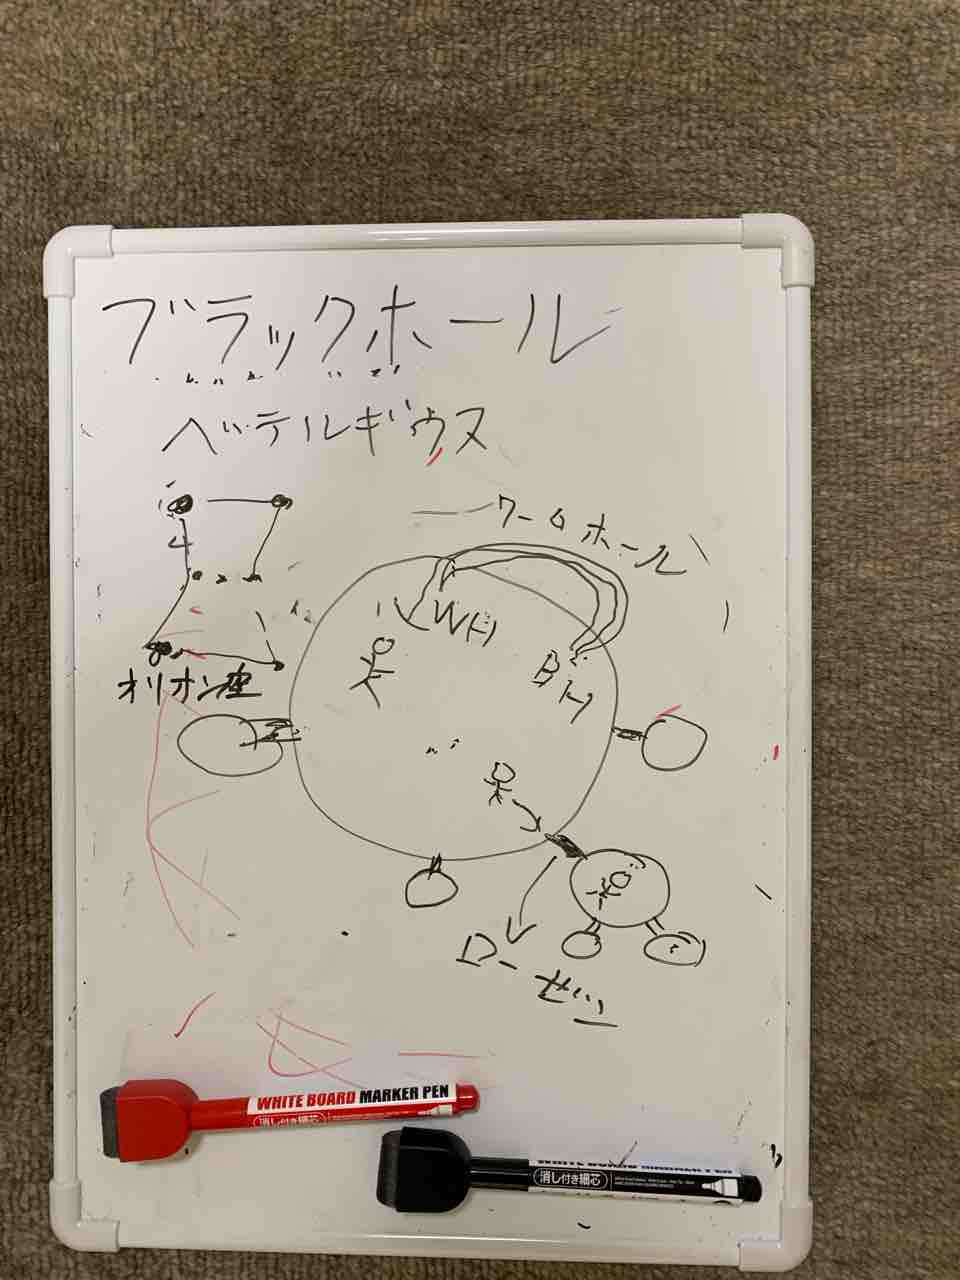 ブラックホール
ベテルギウス
ワームホール
WH
BH
オリオン座
ローゼン
WHITE BOARD MARKER PEN
消し付き細芯
WHITE BOARD MARKER PEN
消し付き細芯